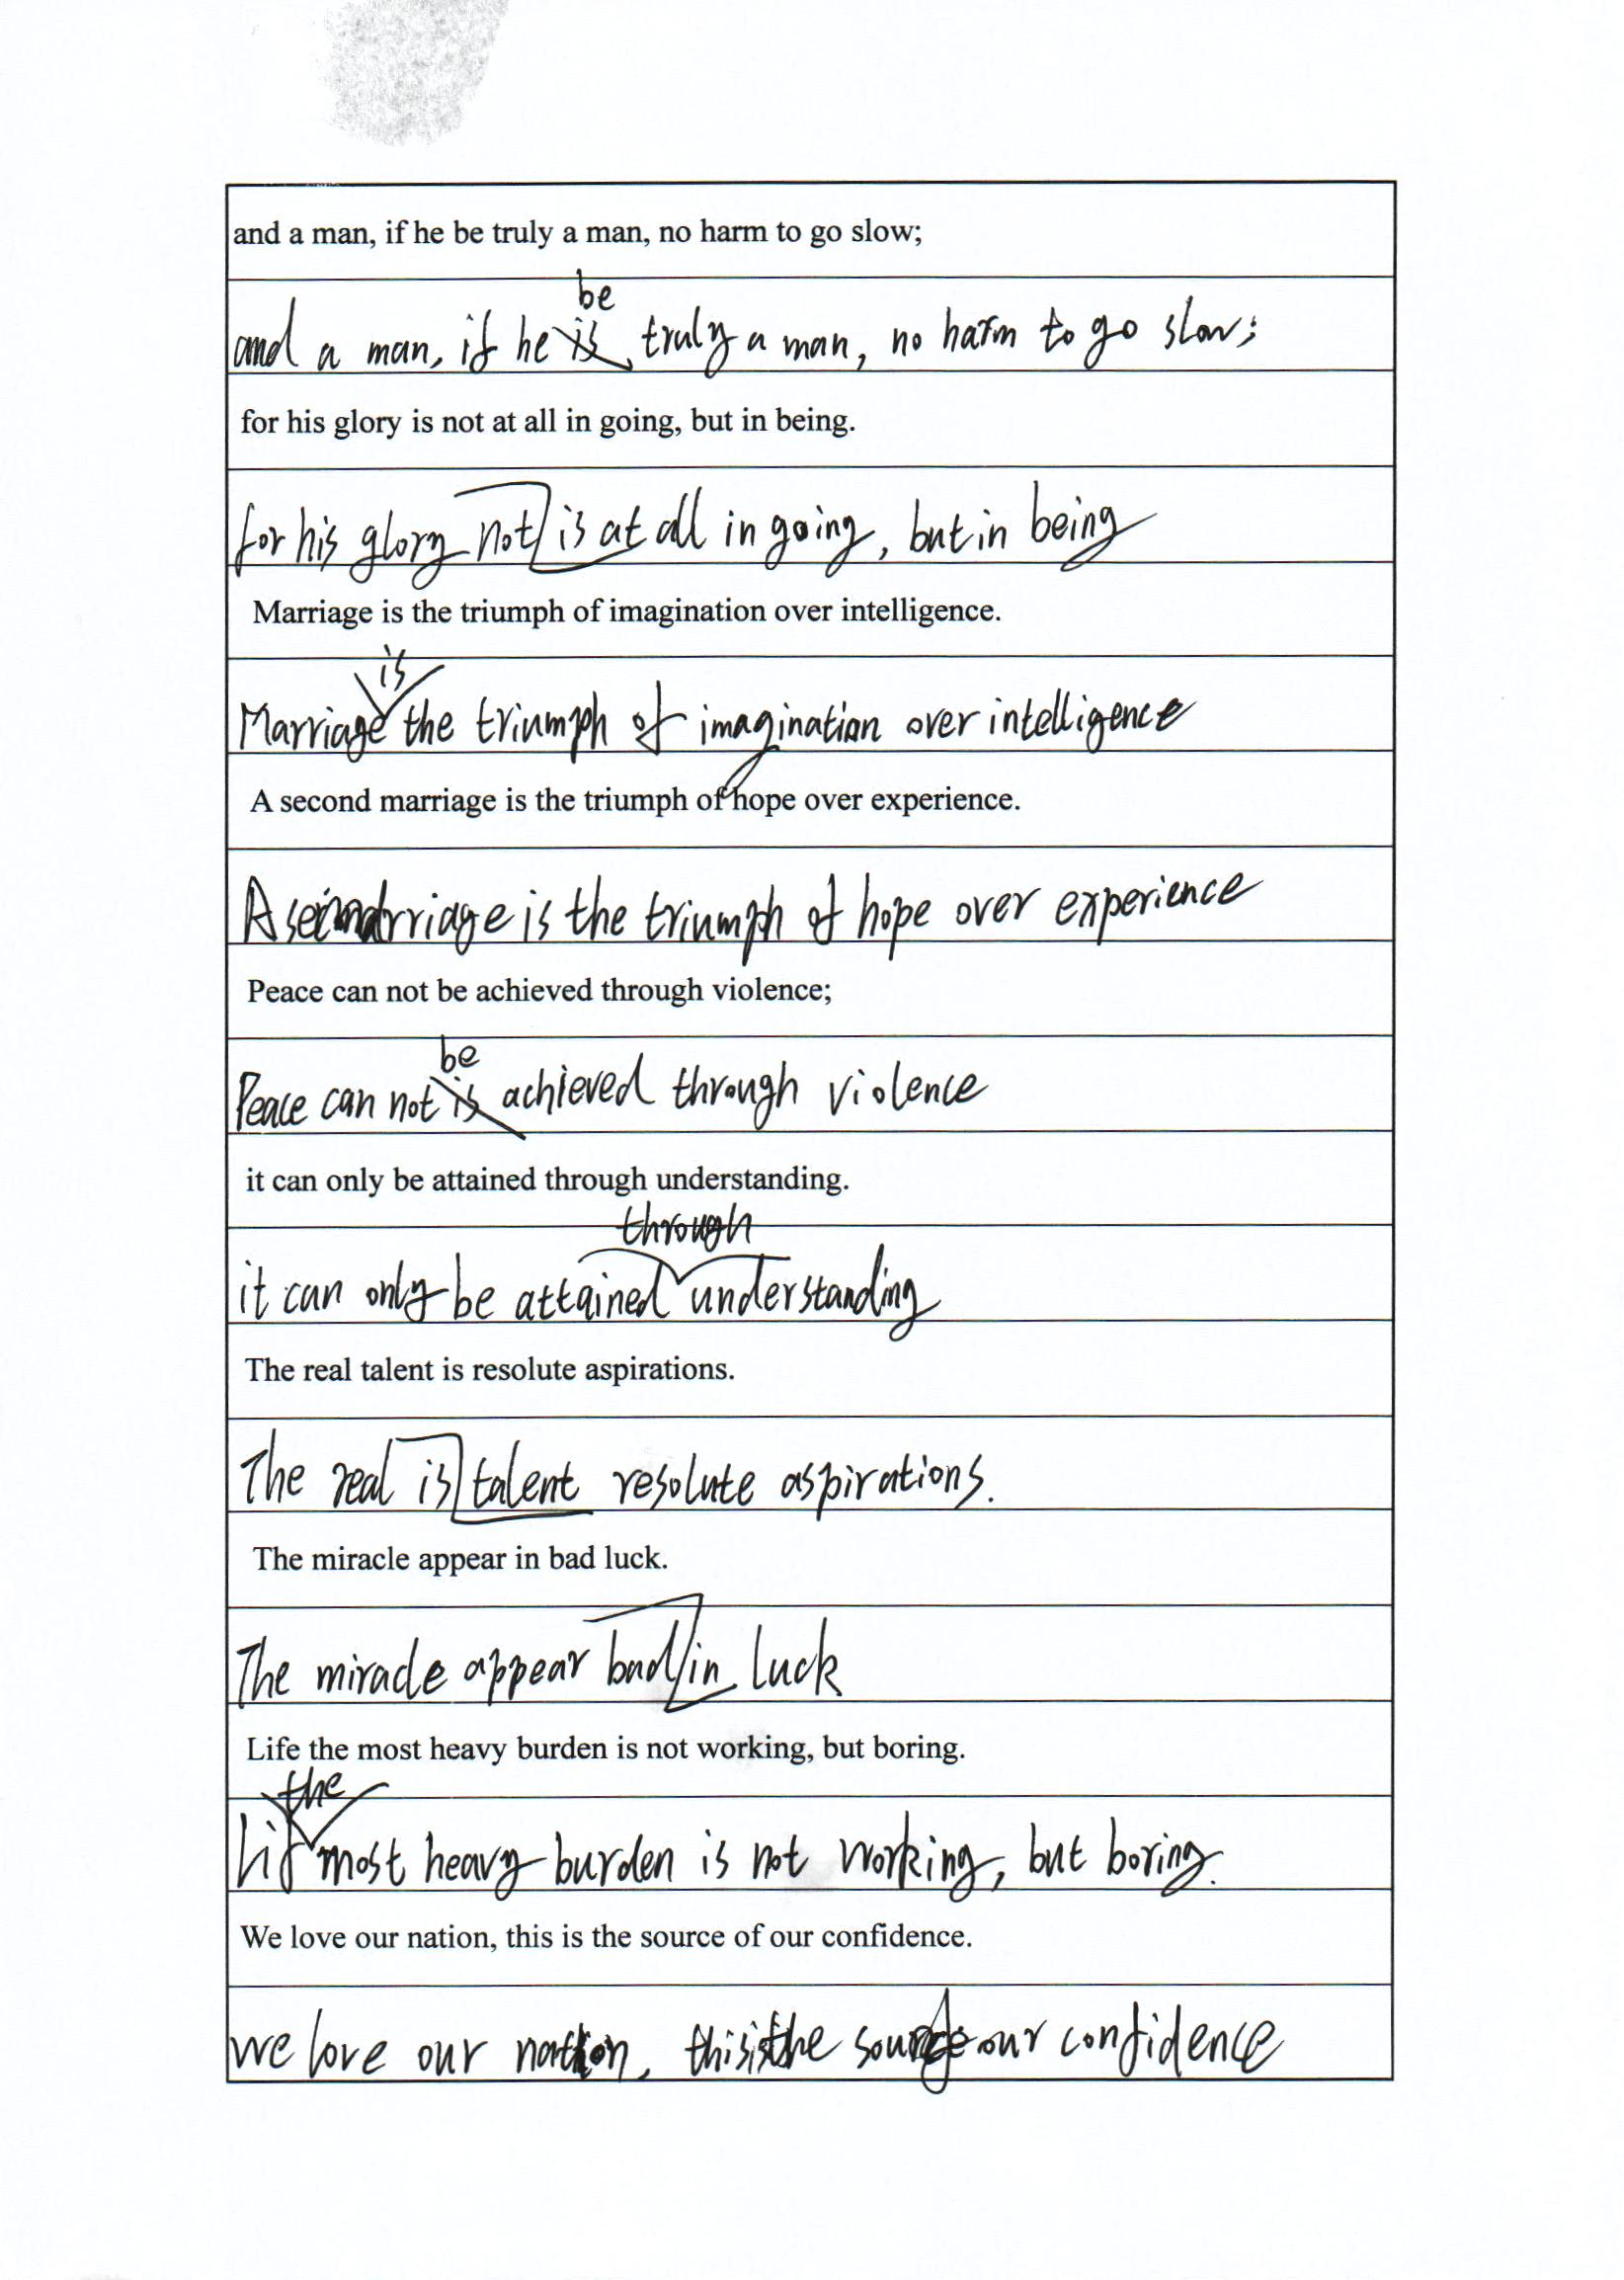 and a man, if he be truly a man, no harm to go slow;
be
and a man, if he is truly a man, no harm to go slow;
for his glory is not at all in going, but in being.
for his glory not is at all in going, but in being
Marriage is the triumph of imagination over intelligence.
is
Marriage the triumph of imagination over intelligence
A second marriage is the triumph of hope over experience.
A is the triumph of hope over experience
Peace can not be achieved through violence;
be
Peace can not is achieved through violence
it can only be attained through understanding.
through
it can only be attained understanding
The real talent is resolute aspirations.
The real is talent resolute aspirations.
The miracle appear in bad luck.
The miracle appear bad in luck
Life the most heavy burden is not working, but boring.
the
most heavy burden is not working, but boring.
We love our nation, this is the source of our confidence.
we love our nation, this is the our confidence